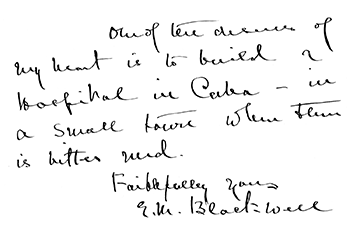 One of the dreams of
my heart is to build a
hospital in Cuba – in
a small town where there
is bitter need.
Faithfully yours
E.M. Blackwell